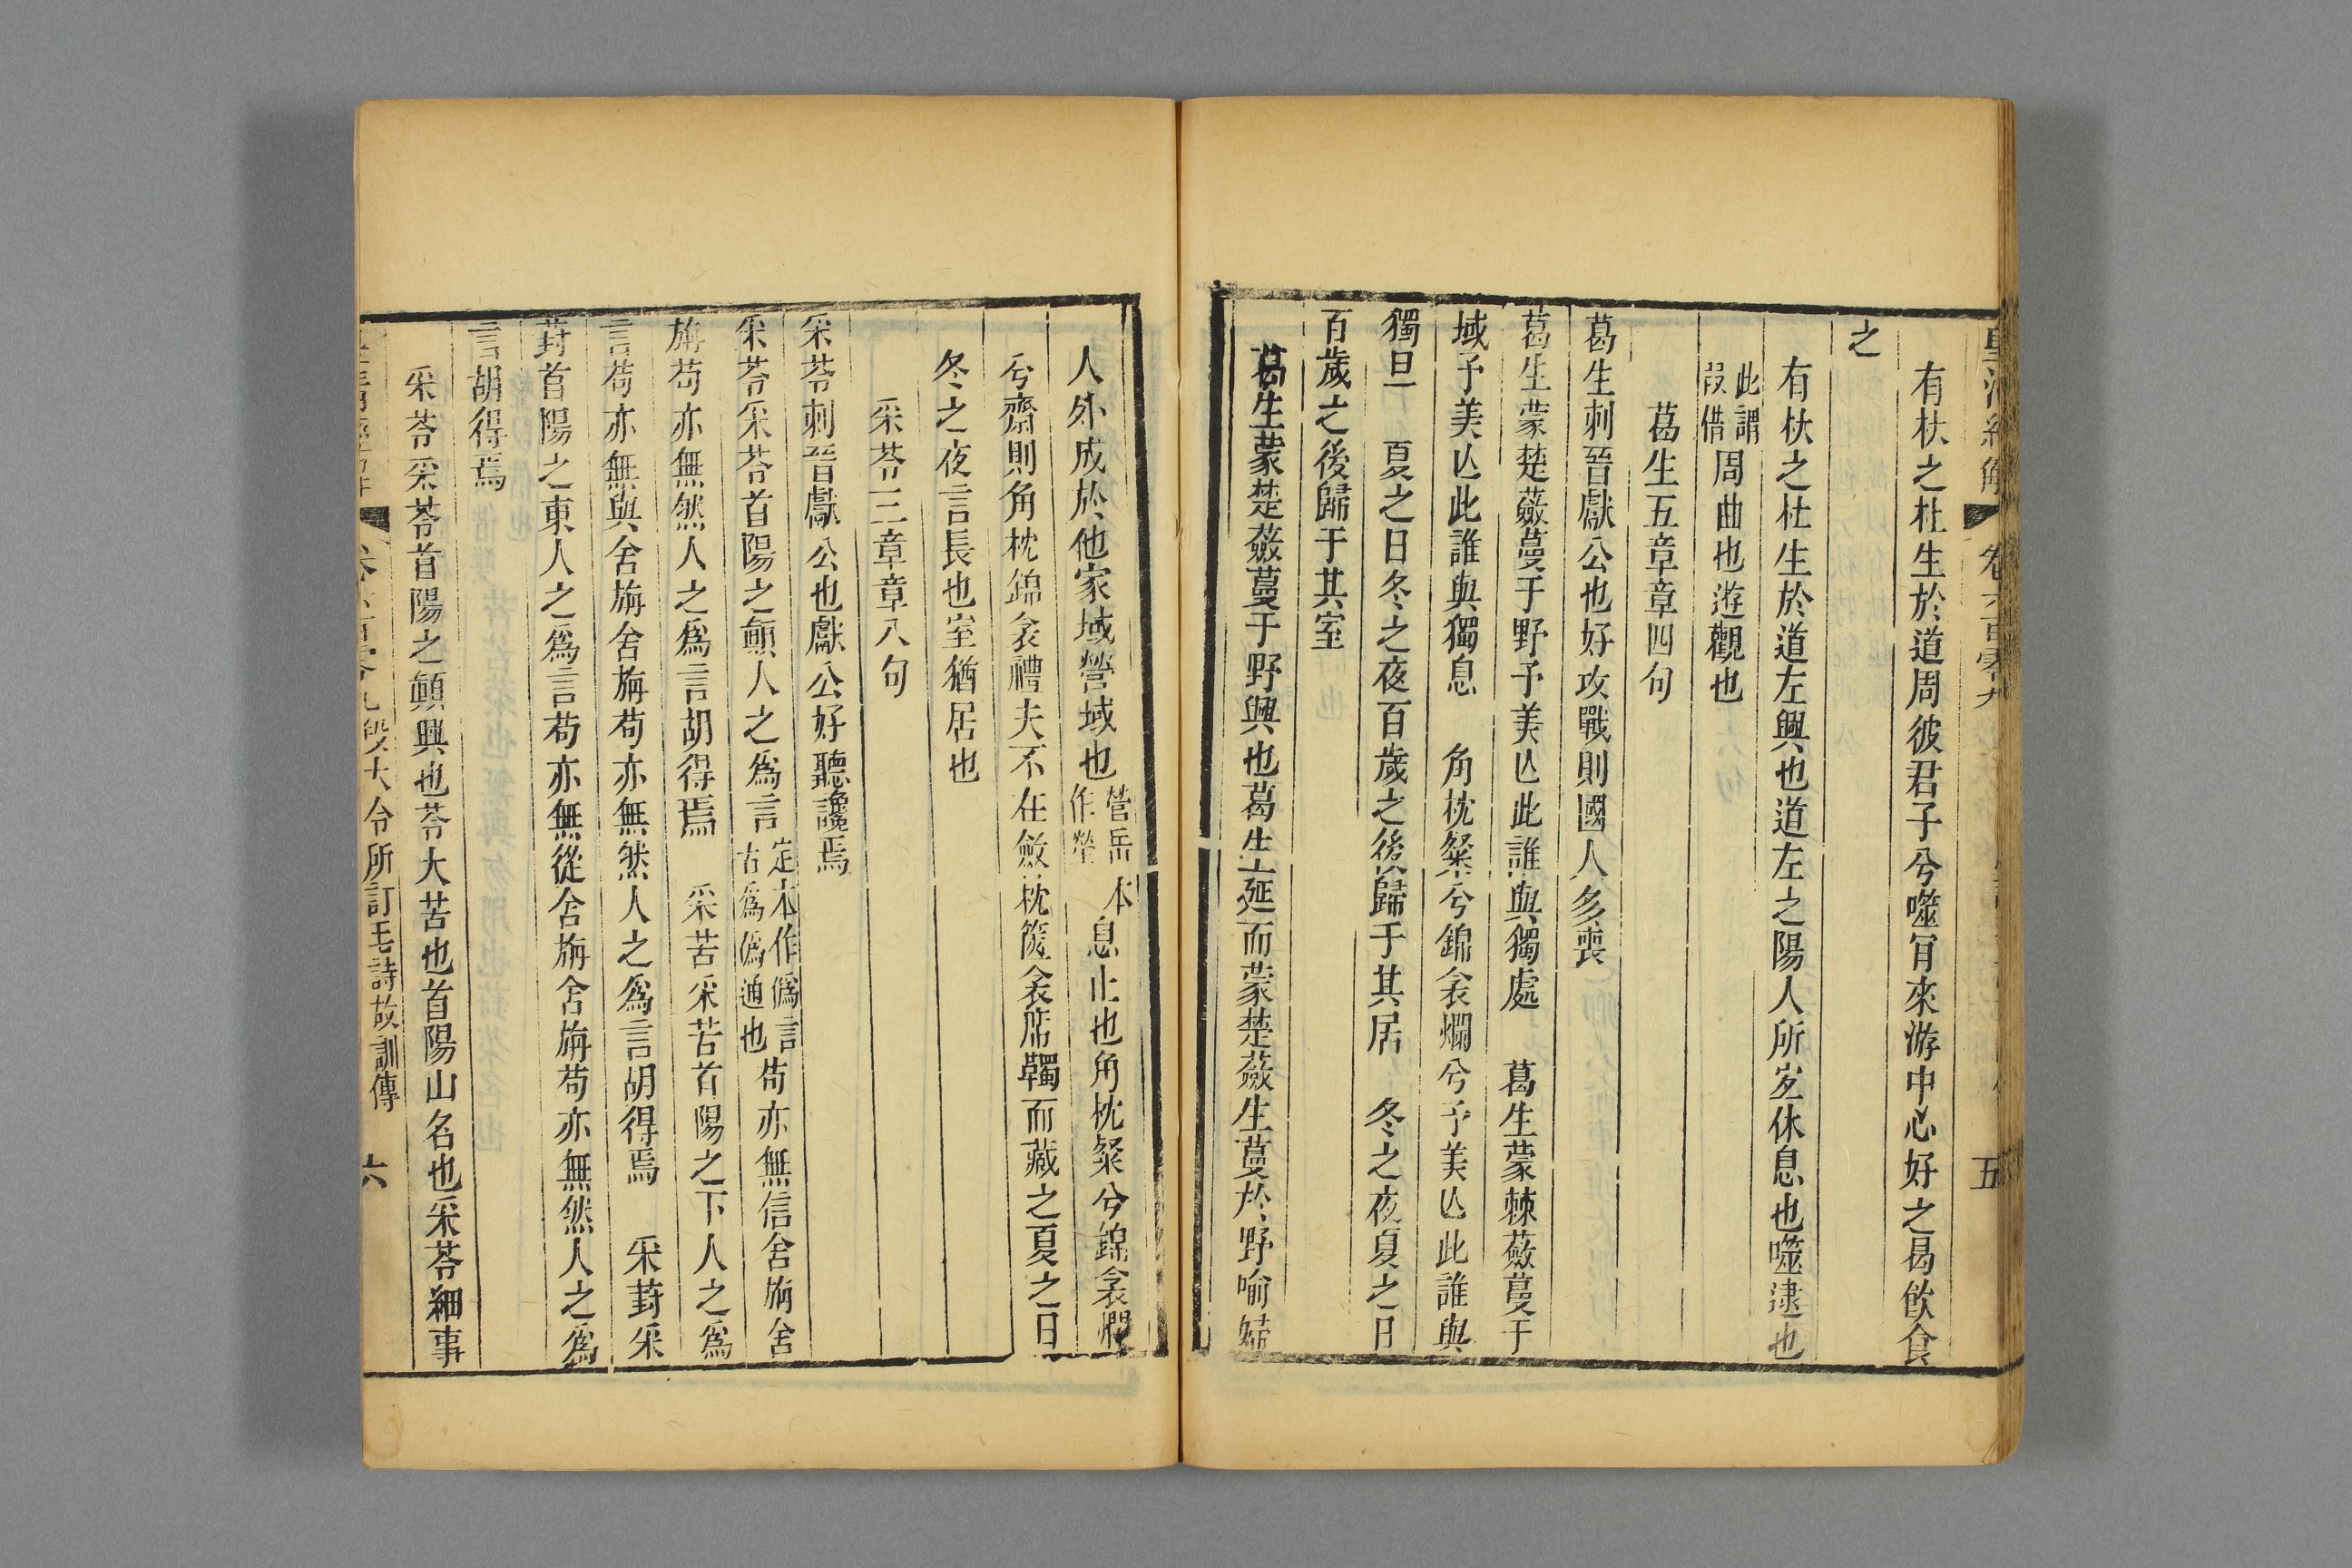 皇清經解 卷六百零九 五
有杕之杜生於道周彼君子兮噬肎來游中心好之曷飮食
之
有杕之杜生於道左興也道左之陽人所宐休息也噬逮也
此謂叚借周曲也遊觀也
葛生五章章四句
葛生刺晉獻公也好攻戰則國人多喪
葛生蒙楚蘞蔓于野予美亾此誰與獨處　葛生蒙棘蘞蔓于
域予美亾此誰與獨息　角枕粲兮錦衾爛兮予美亾此誰與
獨旦　夏之日冬之夜百歲之後歸于其居　冬之夜夏之日
百歲之後歸于其室
葛生蒙楚蘞蔓于野興也葛生延而蒙楚蘞生蔓於野喻婦
人外成於他家域營域也營岳本作塋息止也角枕粲兮錦衾爛
兮齋則角枕錦衾禮夫不在斂枕篋衾席韣而藏之夏之日
冬之夜言長也室猶居也
采苓三章章八句
采苓刺晉獻公也獻公好聽讒焉
采苓采苓首陽之顚人之爲言定本作僞言古爲僞通也苟亦無信舍旃舍
旃苟亦無然人之爲言胡得焉　采苦采苦首陽之下人之爲
言苟亦無與舍旃舍旃苟亦無然人之爲言胡得焉　采葑采
葑首陽之東人之爲言苟亦無從舍旃舍旃苟亦無然人之爲
言胡得焉
采苓采苓首陽之顚興也苓大苦也首陽山名也采苓細事
段大令所訂毛詩故訓傳 六